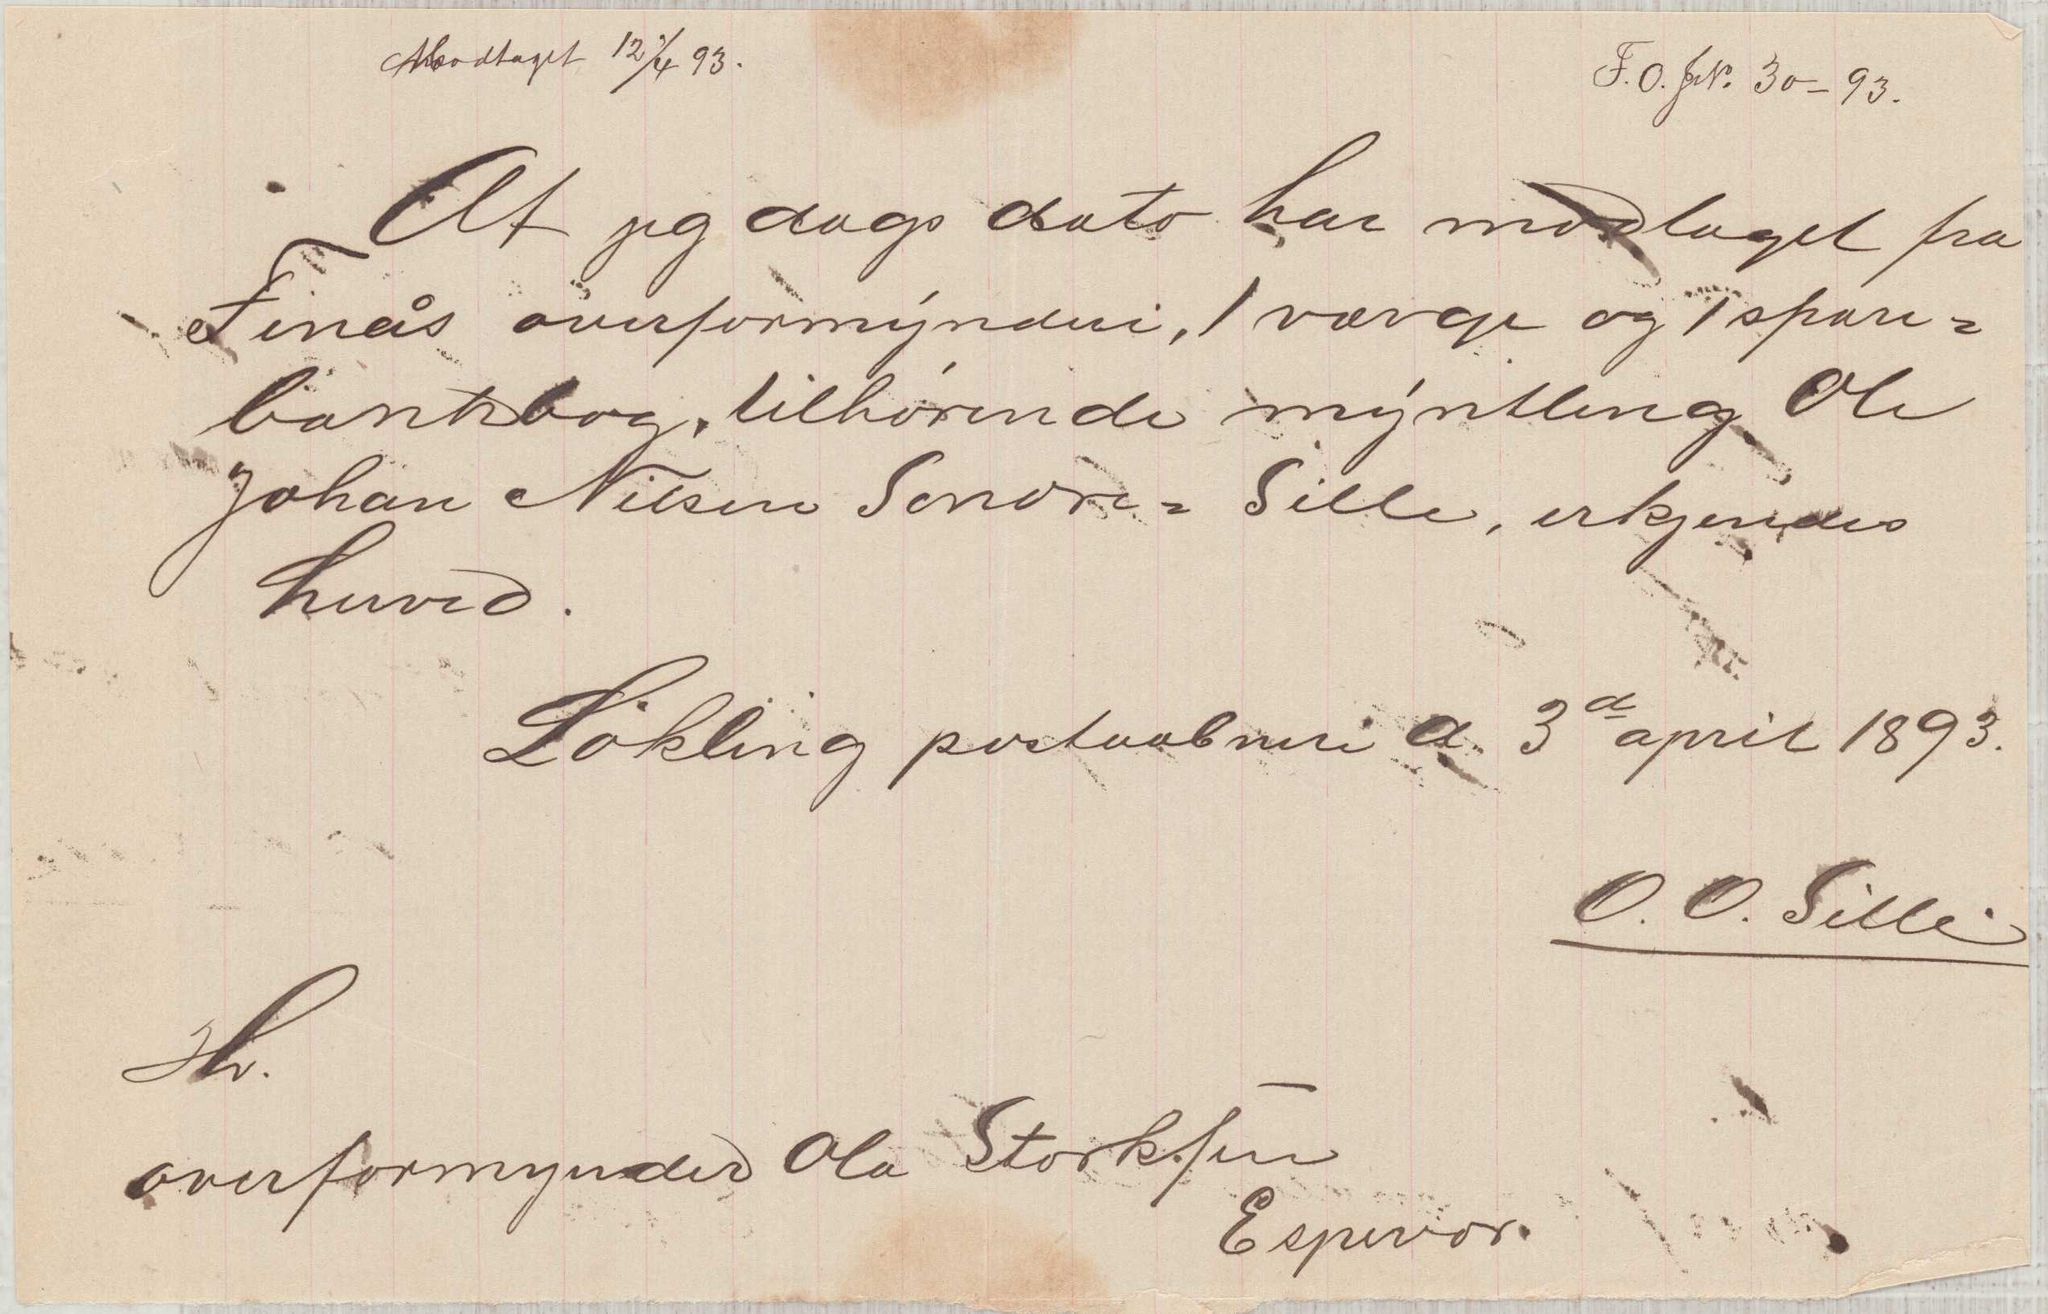 Modtaget 12/4 93.
F.O. JN. 30-93.
At jeg dags dato har modtaget fra
Finås overformynderi, 1 værge og 1 spare=
bankbog, tilhörende myntling Ole
Johan Nilsen Sendre= Sille, erkjendes
herved.
Lökling postaabneri d. 3d april 1893.
O. O. Sille
Hr.
overformynder Ola Storksen
Espevær.